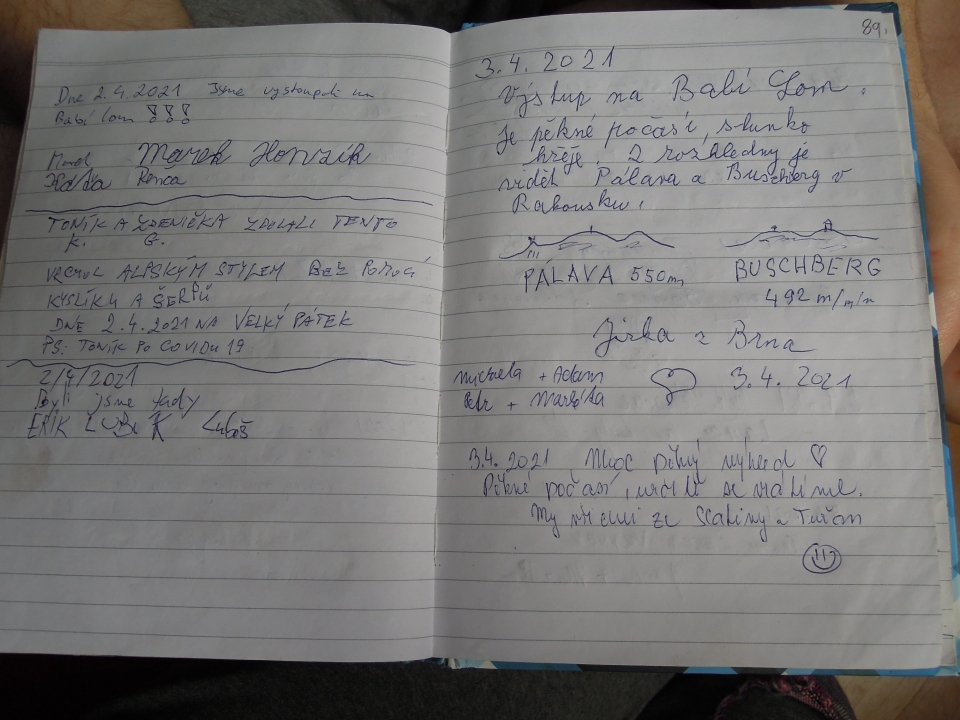 Dne 2.4.2021 Jsme vystoupili na
Babí lom !!!
Marek Honzík
Katka Renča
TONÍK A ZDENIČKA ZDOLALI TENTO
K. G.
VRCHOL ALPSKÝM STYLEM BEZ POMOCI
KYSLÍKU A ŠERPŮ
DNE 2.4.2021 NA VELKÝ PÁTEK
PS: TONÍK PO COVIDU 19
2/4/2021
Byli jsme tady
ERIK Luboš
89.
3.4.2021
Výstup na Babí Lom.
Je pěkné počasí, slunko
hřěje. Z rozhledny je
vidět Pálava a Buschberg v
Rakousku.
PÁLAVA 550m
BUSCHBERG
492 m/m/m
Jirka z Brna
Michaela + Adam
Petr + Markéta
3.4.2021
3.4.2021 Moc pěkný výhled ♡
Pěkné počasí, určitě se vrátíme.
My všichni ze Skaliny a Tuřan